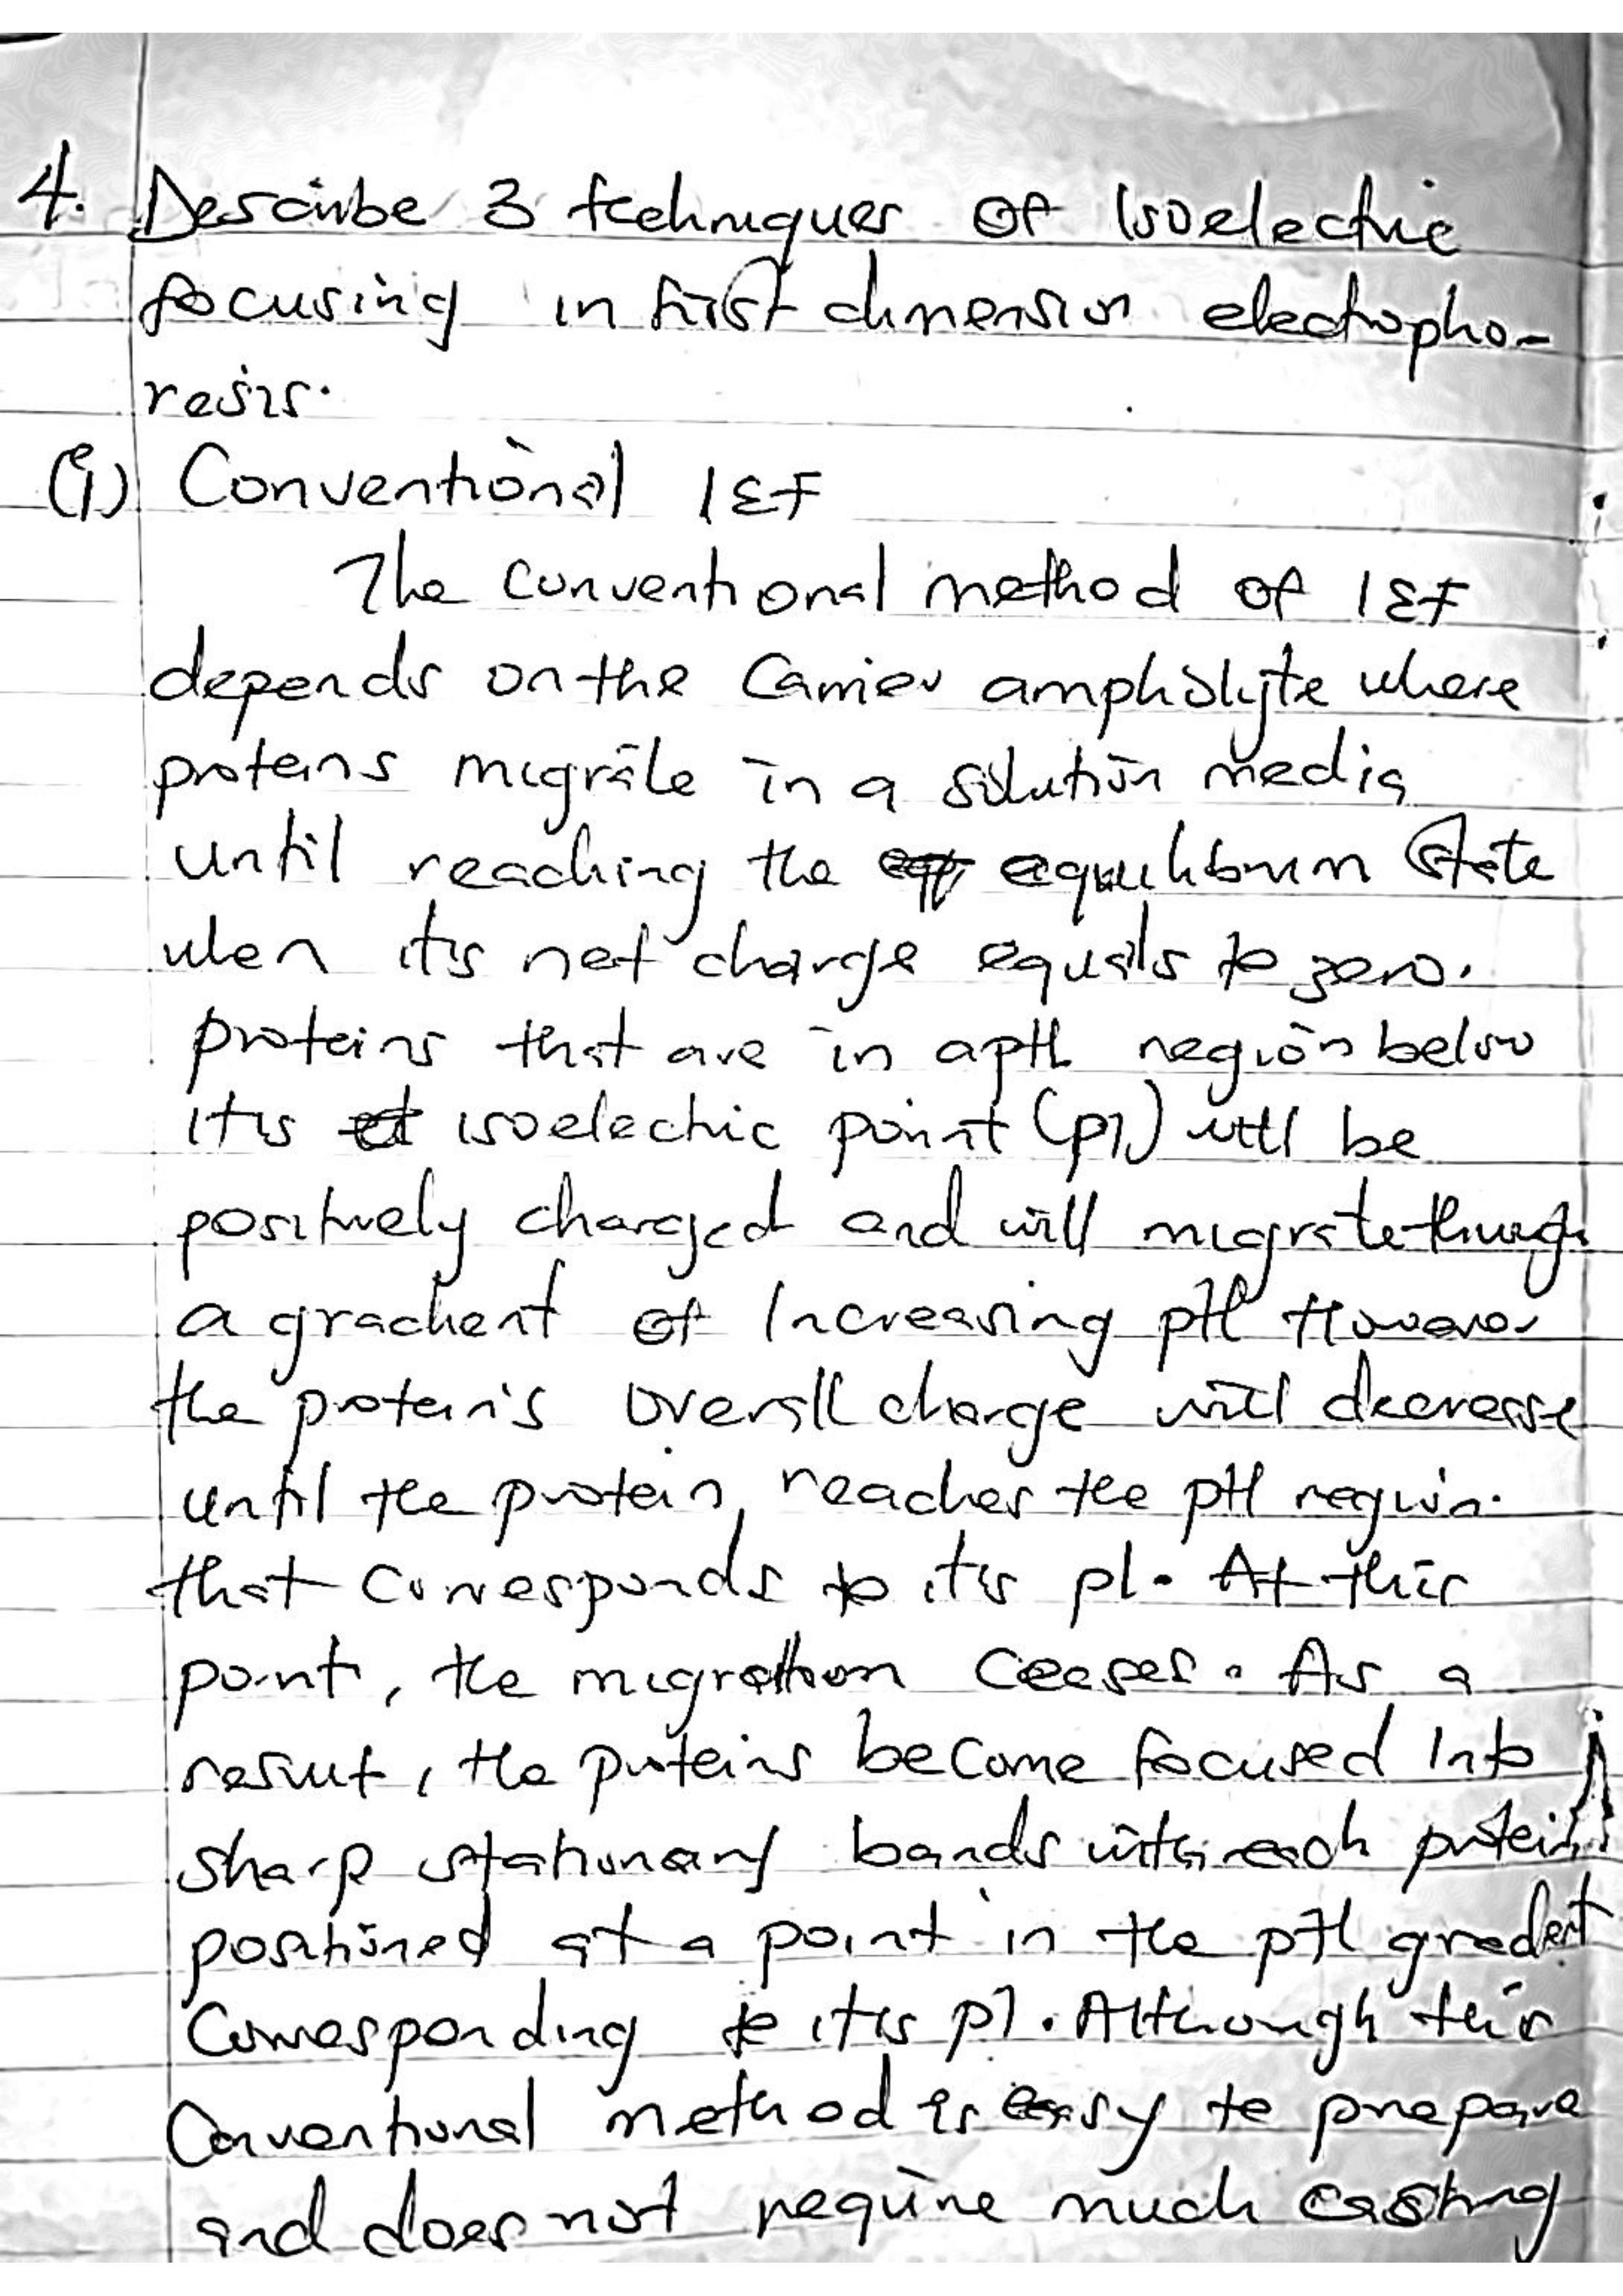 4. Describe 3 techniques of Isoelectric
focusing in first dimension electropho-
resis.
(i) Conventional IEF
The conventional method of IEF
depends on the Carrier ampholyte where
proteins migrate in a solution media
until reaching the equilibrium state
when it's net charge equals to zero.
proteins that are in a pH region below
it's isoelectric point (pI) will be
positively charged and will migrate through
a gradient of Increasing pH However
the protein's overall charge will decrease
until the protein, reaches the pH region.
that corresponds to it's pI. At this
point, the migration ceases. As a
result, the proteins become focused Into
sharp stationary bands with each protein
positioned at a point in the pH gradient
Corresponding to it's pI. Although this
Conventional method is easy to prepare
and does not require much casting